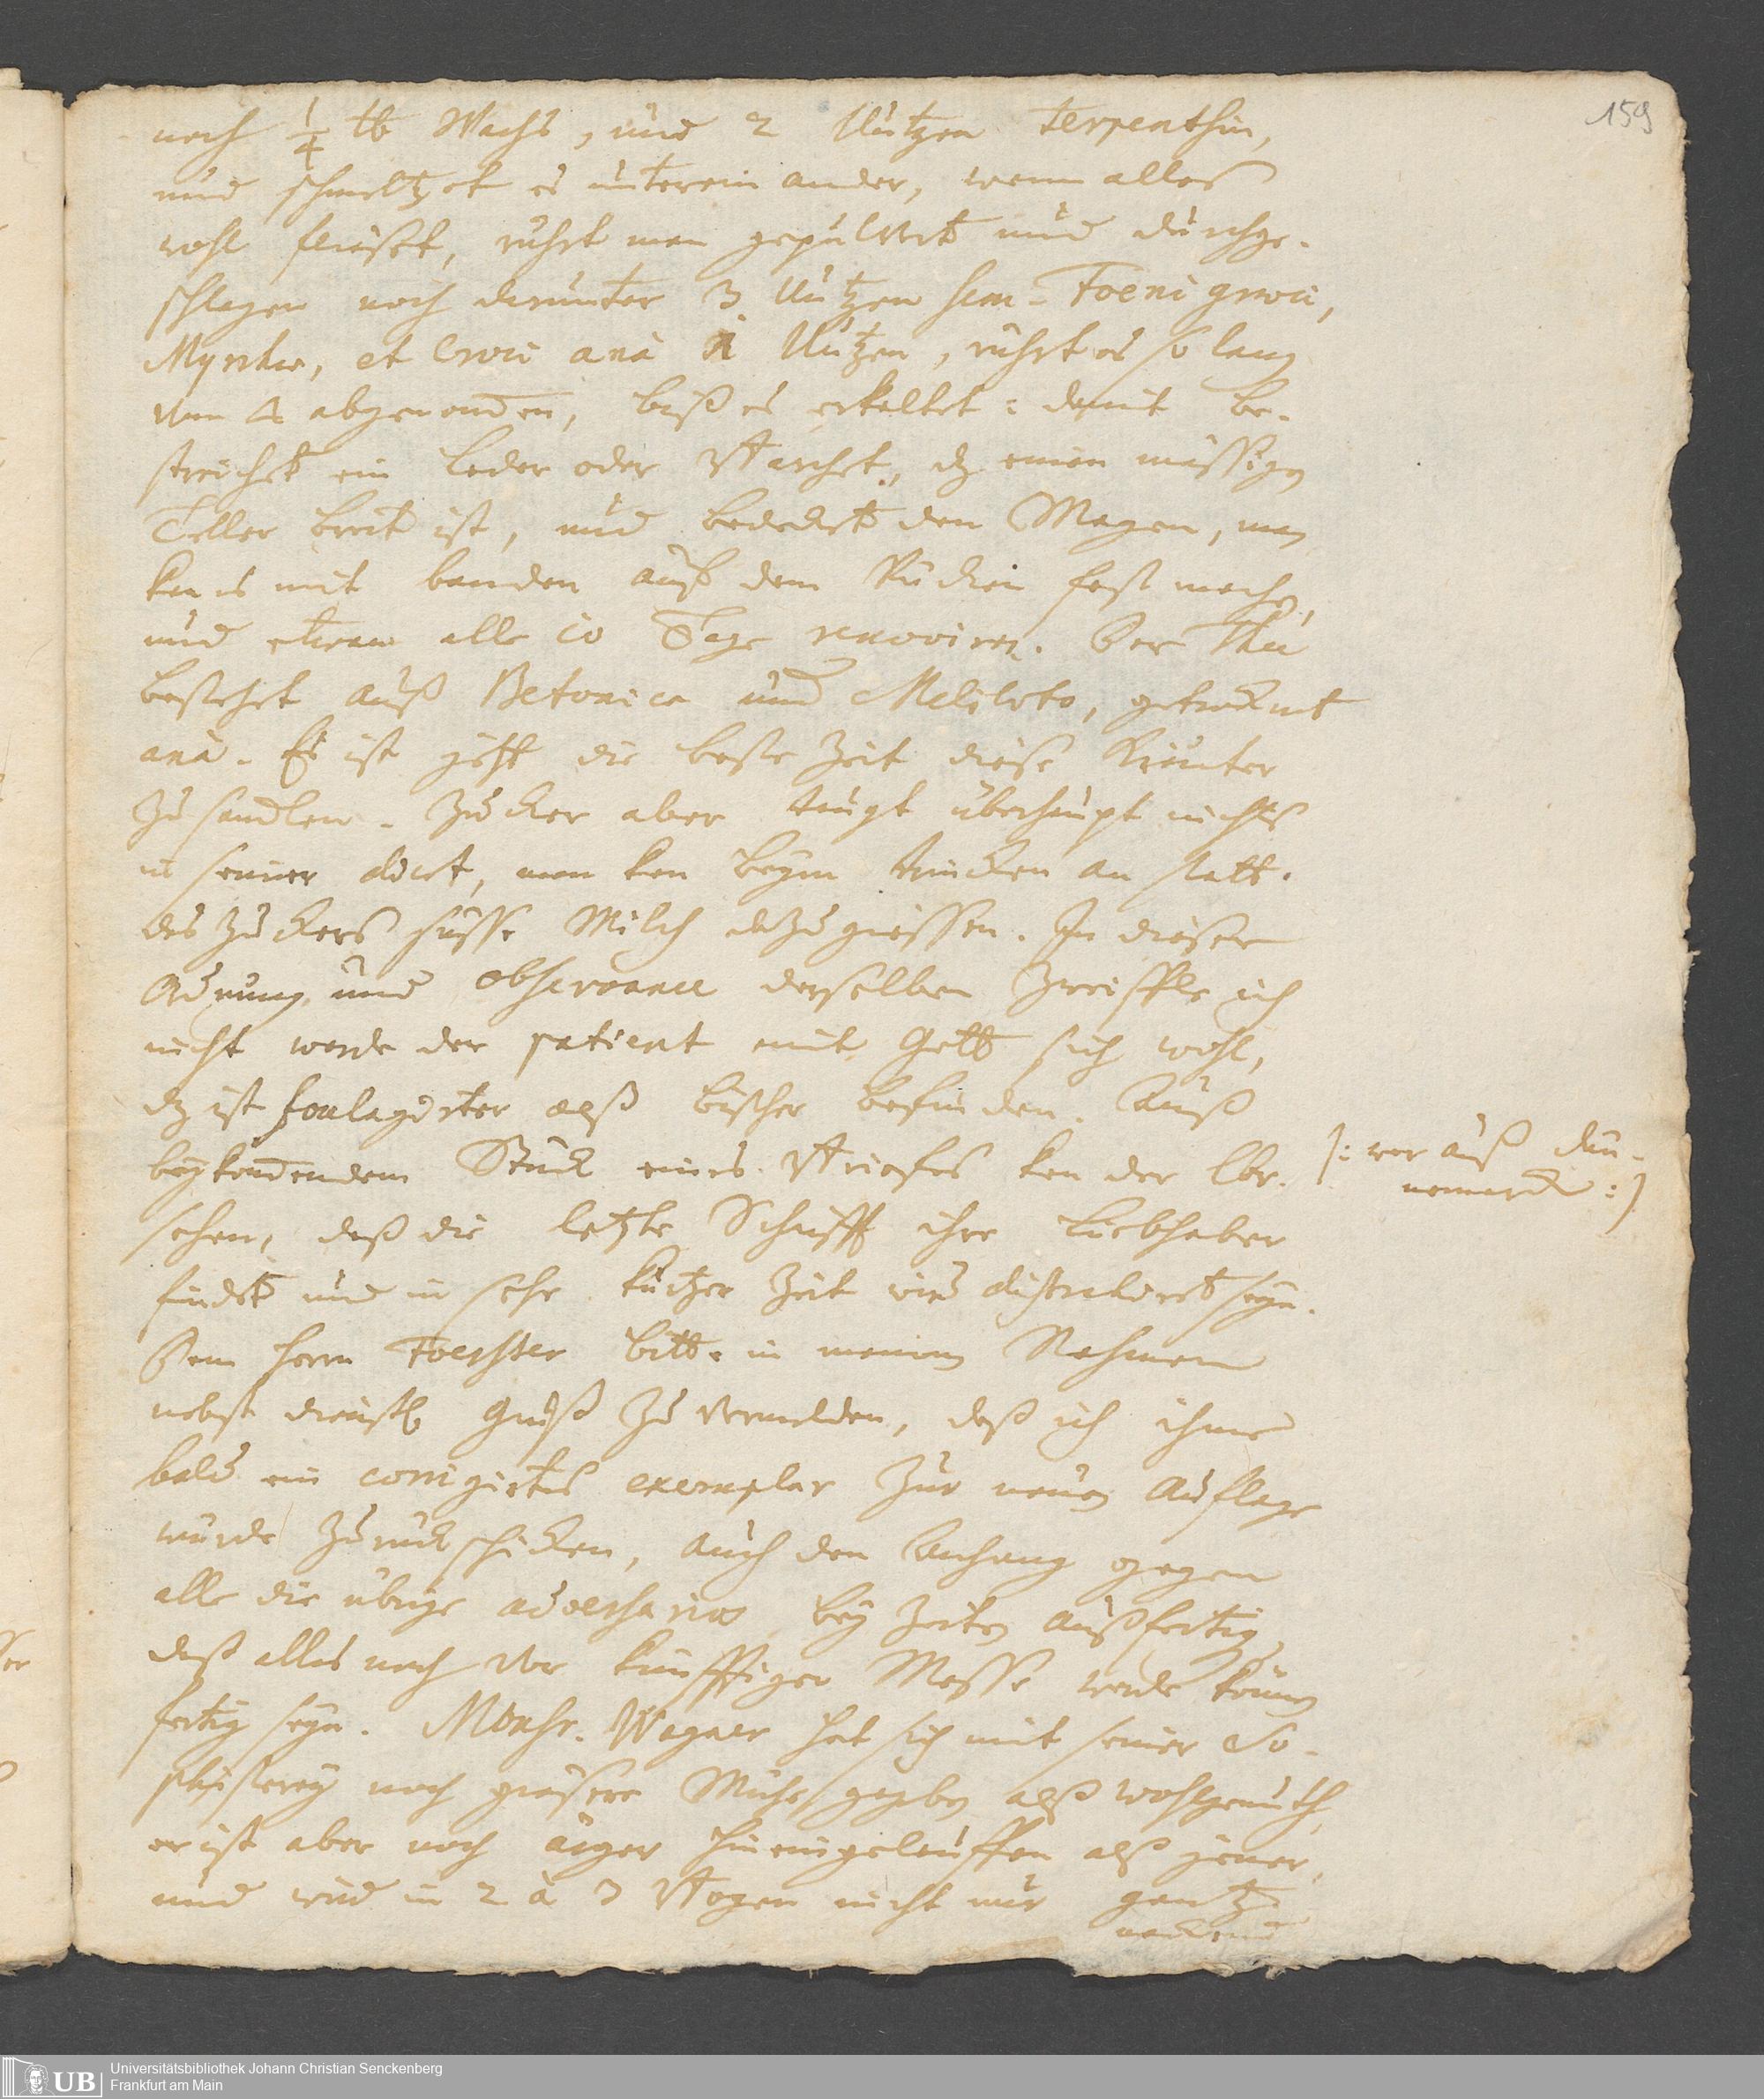 159
noch 1/4 tb Wachs, und 2 Untzen Terpenthin,
und schmeltzet es unterein ander, wenn alles
wohl fliesset, ruhrt man gepulvert und durchge-
schlagen noch darunter 3 Untzen sem. Foeni graeci,
Myrrhae, et Croci anà 1 Untzen, ruhrt es so lang
vom abgenomen, biß es erkaltet: damit be-
streichet ein Leder oder Barchet, dz einen mässigen
Teller breit ist, und bedecket den Magen, man
kan es mit banden auf dem Rucken fest machen,
und etwan alle 10 Tage renoviren. Der Thee
bestehet auß Betonica und Meliloto, getrocknet
anà. Es ist jetzt die beste Zeit diese Kräuter
zu samlen. Zucker aber taugt überhaupt nichts
in seiner diaet, man kan beym trincken an statt
des Zuckers süsse Milch dazu giessen. In dieser
Ordnung und observance derselben zweiffle ich
nicht werde der patient mit Gott sich wohl,
dz ist soulagirter alß bißher befinden. Auß
beykomendem Stuck eines Briefes kan der Cbr. /: wer auß Dän-
nemarck :/
sehen, daß die letzte Schrifft ihre Liebhaber
findet und in sehr kurtzer Zeit wird distrahiret seyn.
Dem Herrn Foerster bitte in meinem Nahmen
nebst dienstl Gruß zu vermelden, daß ich ihme
bald ein corrigirtes exemplar zur neuen Auflage
würde zuruck schicken, auch den Anhang gegen
alle die übrige adversarios bey Zeiten außfertigen,
daß alles noch vor künfftiger Messe werde können
fertig seyn. Monsr. Wagner hat sich mit seiner So-
phisterey noch grösere Mühe gegeben alß Wohlgemuth,
er ist aber noch ärger hineingelauffen alß jener,
und wird in 2 à 3 Bogen nicht nur gantz
nackend
Universitätsbibliothek Johann Christian Senckenberg
Frankfurt am Main
UB